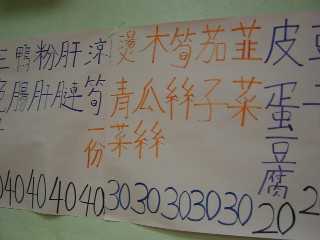 皮蛋豆腐 20
韭菜 30
茄子 30
筍絲 30
木瓜絲 30
燙青菜 一份 30
涼筍 40
肝腱 40
粉肝 40
鴨腸 40